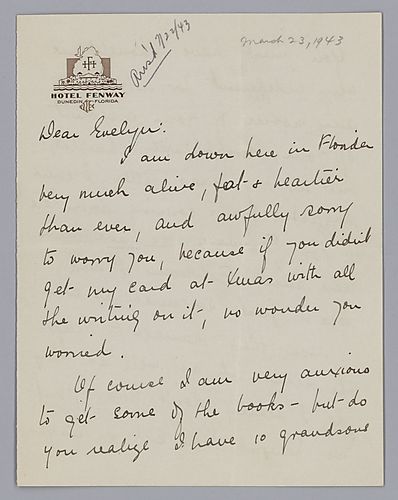 March 23, 1943
HFH
HOTEL FENWAY
DUNEDIN, FLORIDA
Dear Evelyn:
I am down here in Florida
very much alive, fat & heartier
than ever, and awfully sorry
to worry you, because if you didn't
get my card at Xmas with all
the writing on it, no wonder you
worried.
Of course I am very anxious
to get some of the books – but do
you realize I have 10 grandsons